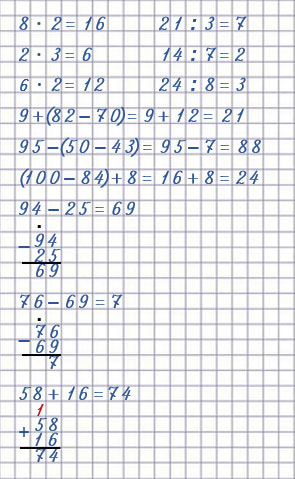 8 · 2 = 16 21 : 3 = 7
2 · 3 = 6 14 : 7 = 2
6 · 2 = 12 24 : 8 = 3
9 + (82 - 70) = 9 + 12 = 21
95 - (50 - 43) = 95 - 7 = 88
(100 - 84) + 8 = 16 + 8 = 24
94 - 25 = 69
- 94
25
69
76 - 69 = 7
- 76
69
7
58 + 16 = 74
1
+ 58
16
74